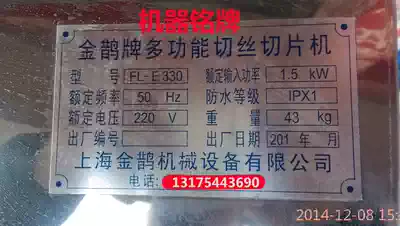 机器铭牌
金鹊牌多功能切丝切片机
型号 FL-E330 额定输入功率 1.5 kW
额定频率 50 Hz 防水等级 IPX1
额定电压 220 V 重量 43 kg
出厂编号 出厂日期 201 年 月
上海金鹊机械设备有限公司
电话: 13175443690
2014-12-08 15: